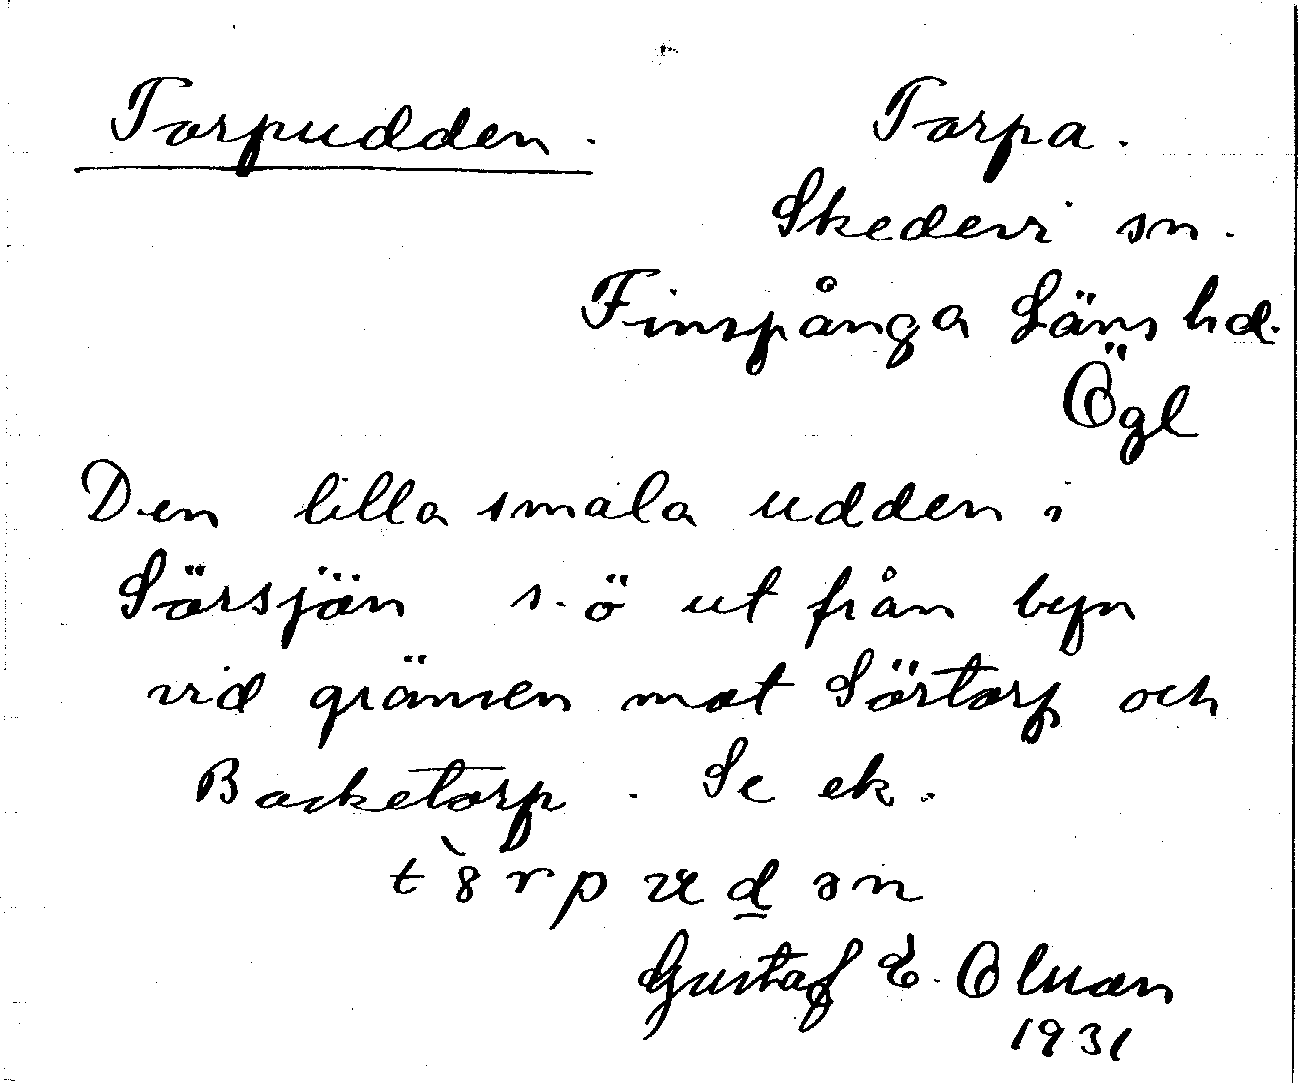 Torpudden. Torpa.
Skedevi sn.
Finspånga Läns hd.
Ögl
Den lilla smala udden i
Sörsjön s.ö ut från byn
vid gränsen mot Sörtorp och
Backetorp. Se ek.
Gustaf E. Olsson
1931